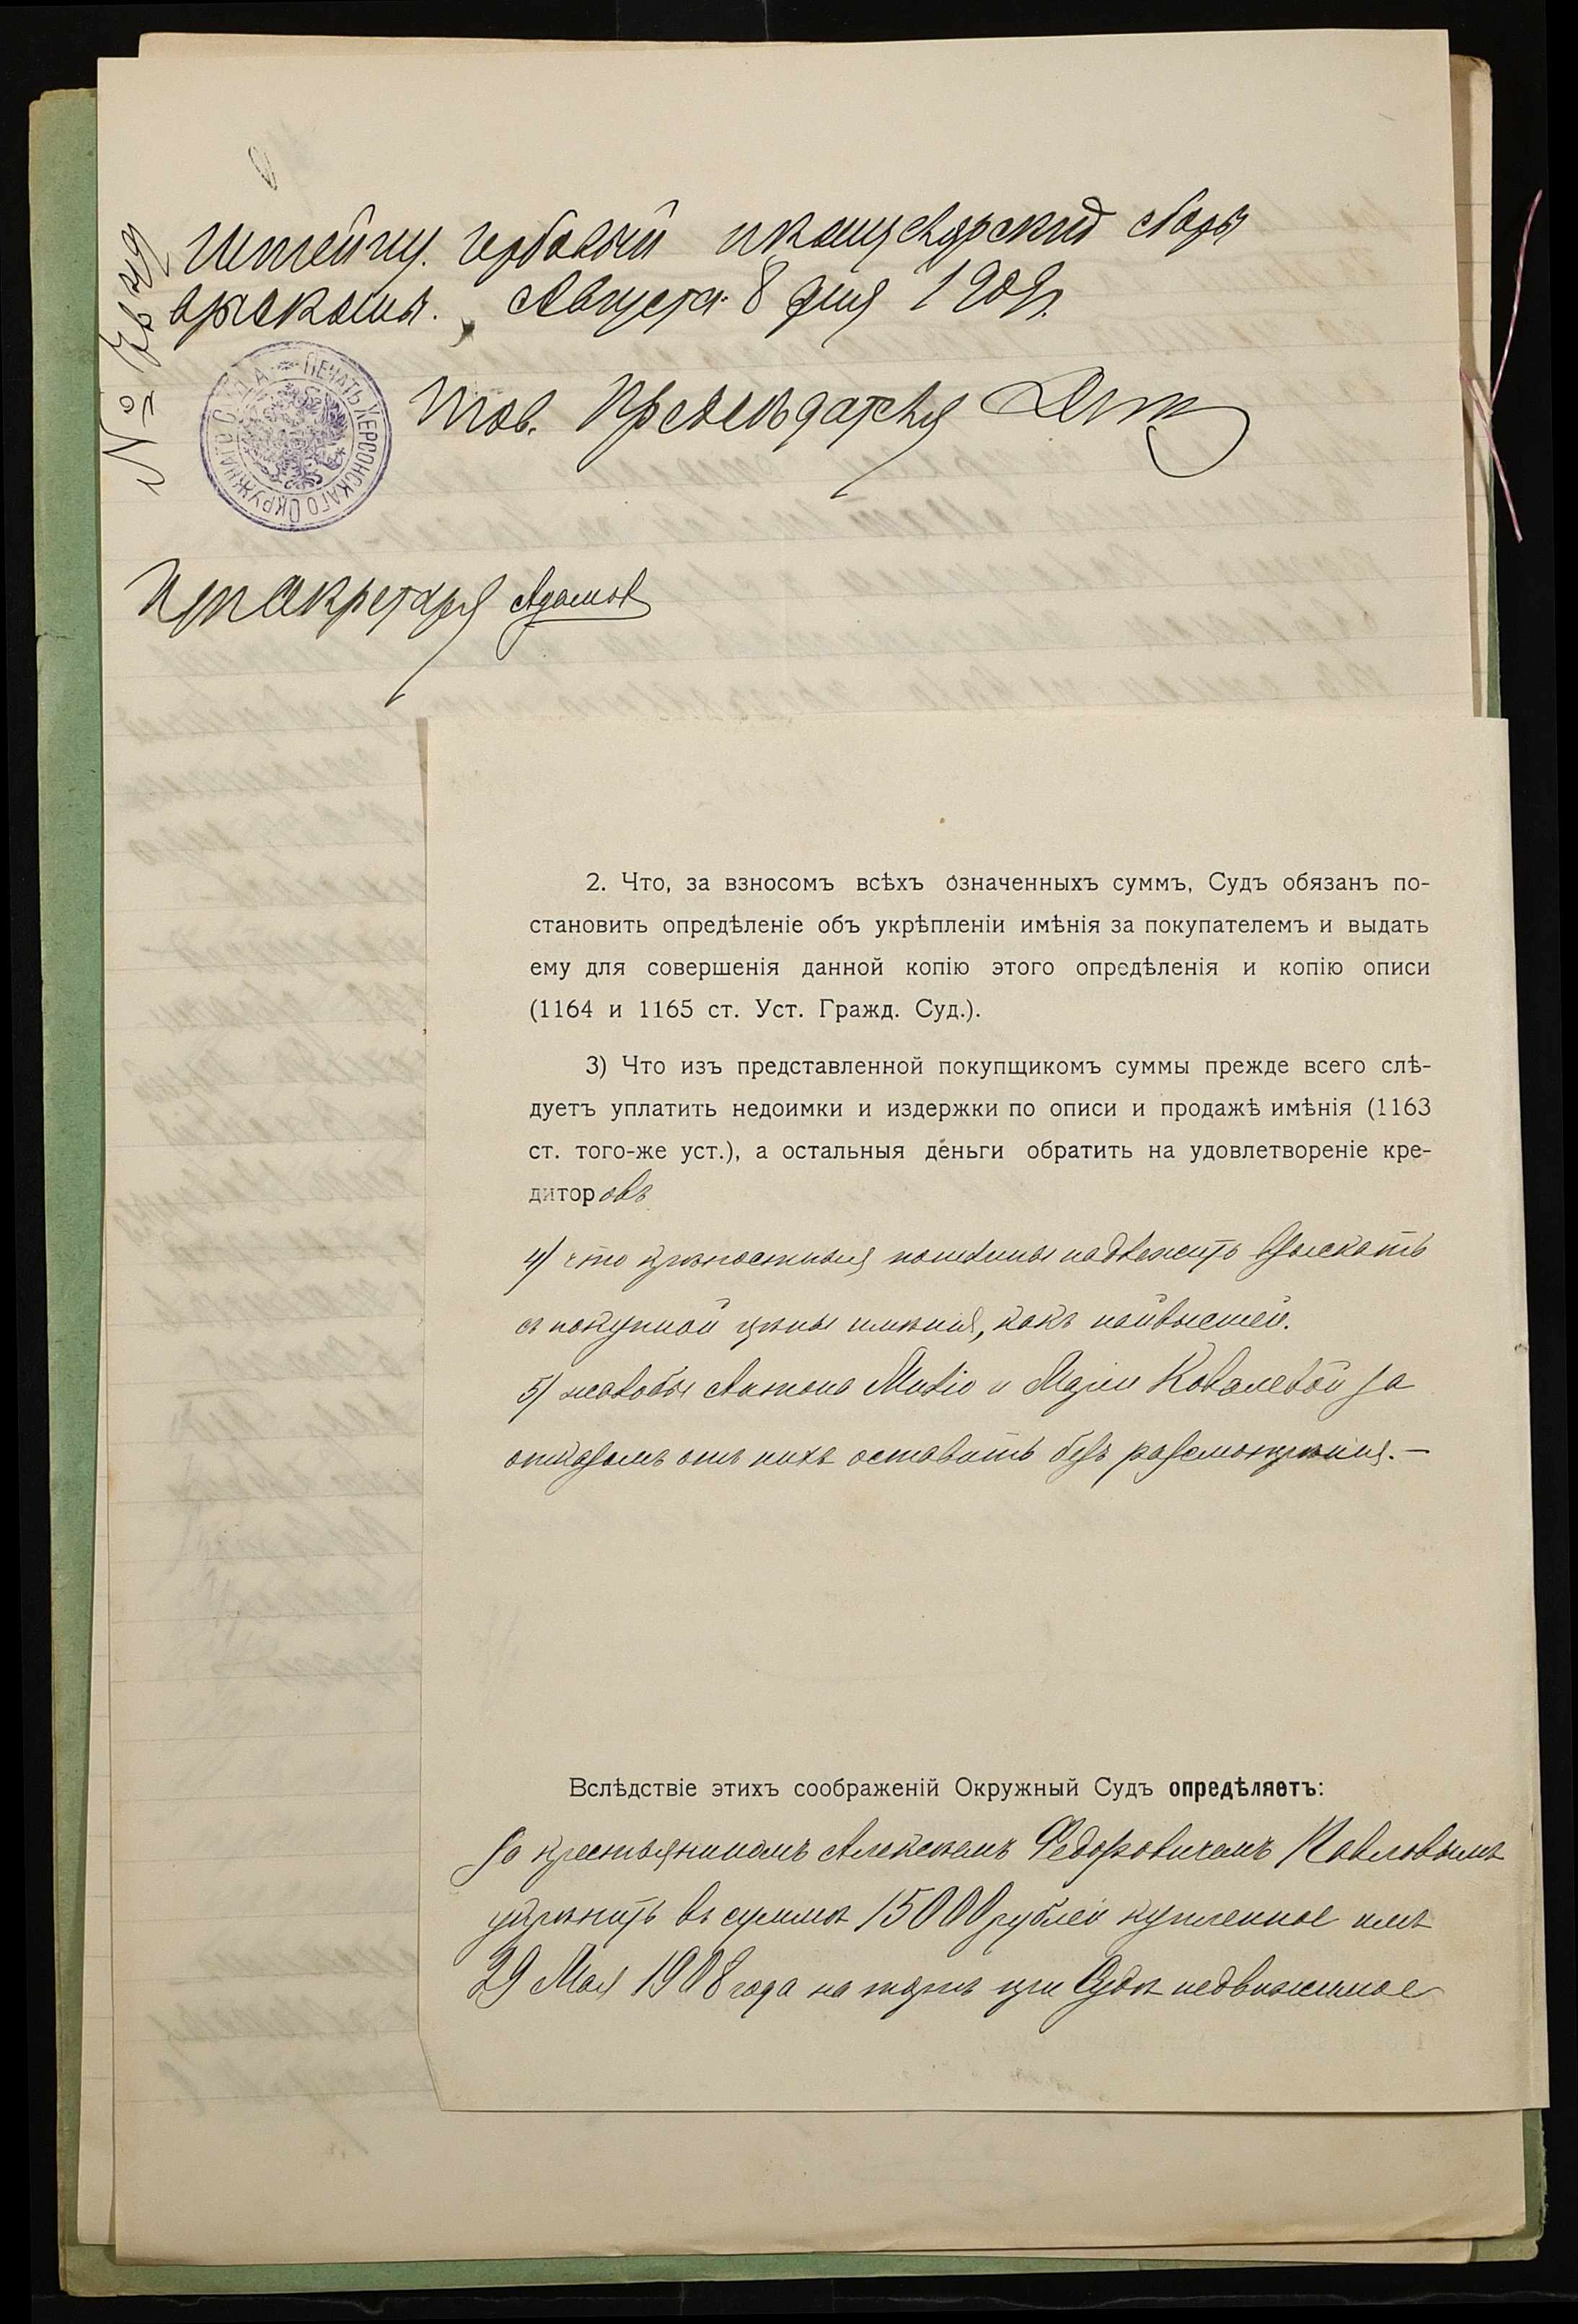 Штейну. Гербовый и канцелярский сборы
взысканы. Августа 8 дня 1909 г.
№
ПЕЧАТЬ ХЕРСОНСКАГО ОКРУЖНАГО СУДА
Тов. Председателя
И. д. Секретаря Адамов
2. Что, за взносомъ всѣхъ означенныхъ суммъ, Судъ обязанъ по-
становить опредѣленіе объ укрѣпленіи имѣнія за покупателемъ и выдать
ему для совершенія данной копію этого опредѣленія и копію описи
(1164 и 1165 ст. Уст. Гражд. Суд.).
3) Что изъ представленной покупщикомъ суммы прежде всего слѣ-
дуетъ уплатить недоимки и издержки по описи и продажѣ имѣнія (1163
ст. того-же уст.), а остальныя деньги обратить на удовлетвореніе кре-
диторовъ
4) что крѣпостныя пошлины надлежитъ взыскать
съ покупной цѣны имѣнія, какъ наивысшей.
5) жалобы Антона и Маріи Ковалевой за
отказомъ отъ нихъ оставить безъ разсмотрѣнія.—
Вслѣдствіе этихъ соображеній Окружный Судъ опредѣляетъ:
За крестьяниномъ Алексѣемъ Федоровичемъ Павловымъ
укрѣпить въ суммѣ 15000 рублей купленное имъ
29 Мая 1908 года на торгѣ при Судѣ недвижимое